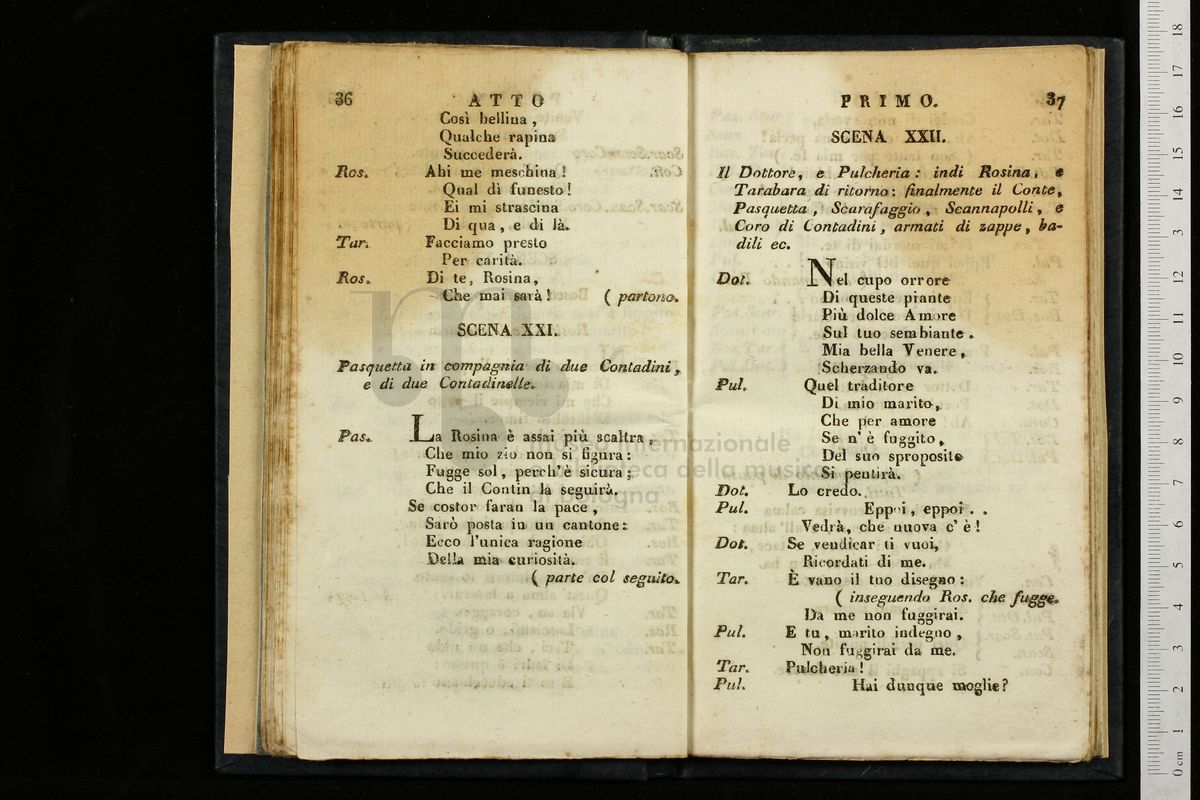 36
ATTO
Così bellina,
Qualche rapina
Succederà.
Ros. Ahi me meschina!
Qual dì funesto!
Ei mi strascina
Di qua, e di là.
Tar. Facciamo presto
Per carità.
Ros. Di te, Rosina,
Che mai sarà! (partono.
SCENA XXI.
Pasquetta in compagnia di due Contadini,
e di due Contadinelle.
Pas. La Rosina è assai più scaltra,
Che mio zio non si figura:
Fugge sol, perch'è sicura,
Che il Contin la seguirà.
Se costor faran la pace,
Sarò posta in un cantone:
Ecco l'unica ragione
Della mia curiosità.
(parte col seguito.
PRIMO.
37
SCENA XXII.
Il Dottore, e Pulcheria: indi Rosina, e
Tarabara di ritorno: finalmente il Conte,
Pasquetta, Scarafaggio, Scannapolli, e
Coro di Contadini, armati di zappe, ba-
dili ec.
Dot. Nel cupo orrore
Di queste piante
Più dolce Amore
Sul tuo sembiante.
Mia bella Venere,
Scherzando va.
Pul. Quel traditore
Di mio marito,
Che per amore
Se n'è fuggito,
Del suo sproposito
Si pentirà.
Dot. Lo credo.
Pul. Eppoi, eppoi..
Vedrà, che nuova c'è!
Dot. Se vendicar ti vuoi,
Ricordati di me.
Tar. È vano il tuo disegno:
(inseguendo Ros. che fugge.
Da me non fuggirai.
Pul. E tu, marito indegno,
Non fuggirai da me.
Tar. Pulcheria!
Pul. Hai dunque moglie?
museo internazionale
e biblioteca della musica
di bologna
0 cm 1 2 3 4 5 6 7 8 9 10 11 12 13 14 15 16 17 18